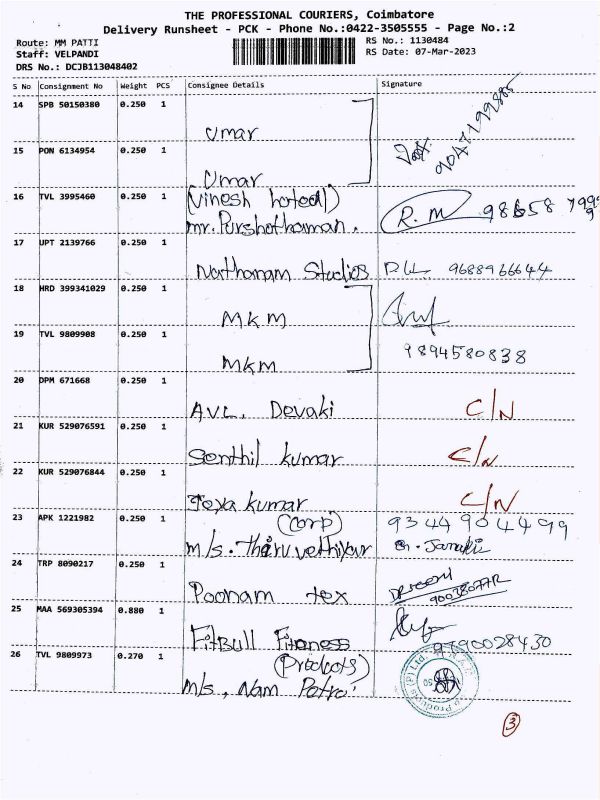 THE PROFESSIONAL COURIERS, Coimbatore
Delivery Runsheet - PCK - Phone No.:0422-3505555 - Page No.:2
Route: MM PATTI
Staff: VELPANDI
DRS No.: DCJB113048402
RS No.: 1130484
RS Date: 07-Mar-2023
S No Consignment No Weight PCS Consignee Details Signature
14 SPB 50150380 0.250 1
Umar
15 PON 6134954 0.250 1
Umar
9047199885
16 TVL 3995460 0.250 1
(Vinesh hoteal)
mr. Purshothaman.
R.M
17 UPT 2139766 0.250 1
Nathanam Studios 9688966644
18 HRD 399341029 0.250 1
MKM
19 TVL 9809908 0.250 1
MKM
9894580838
20 DPM 671668 0.250 1
AVL. Devaki C/N
21 KUR 529076591 0.250 1
Senthil kumar C/N
22 KUR 529076844 0.250 1
Jeya kumar C/N
23 APK 1221982 0.250 1
(corp) 9344904499
m/s.
24 TRP 8090217 0.250 1
Poonam tex
25 MAA 569305394 0.880 1
FitBull Fitness 9790028430
26 TVL 9809973 0.270 1
(Products)
m/s, Nam
3